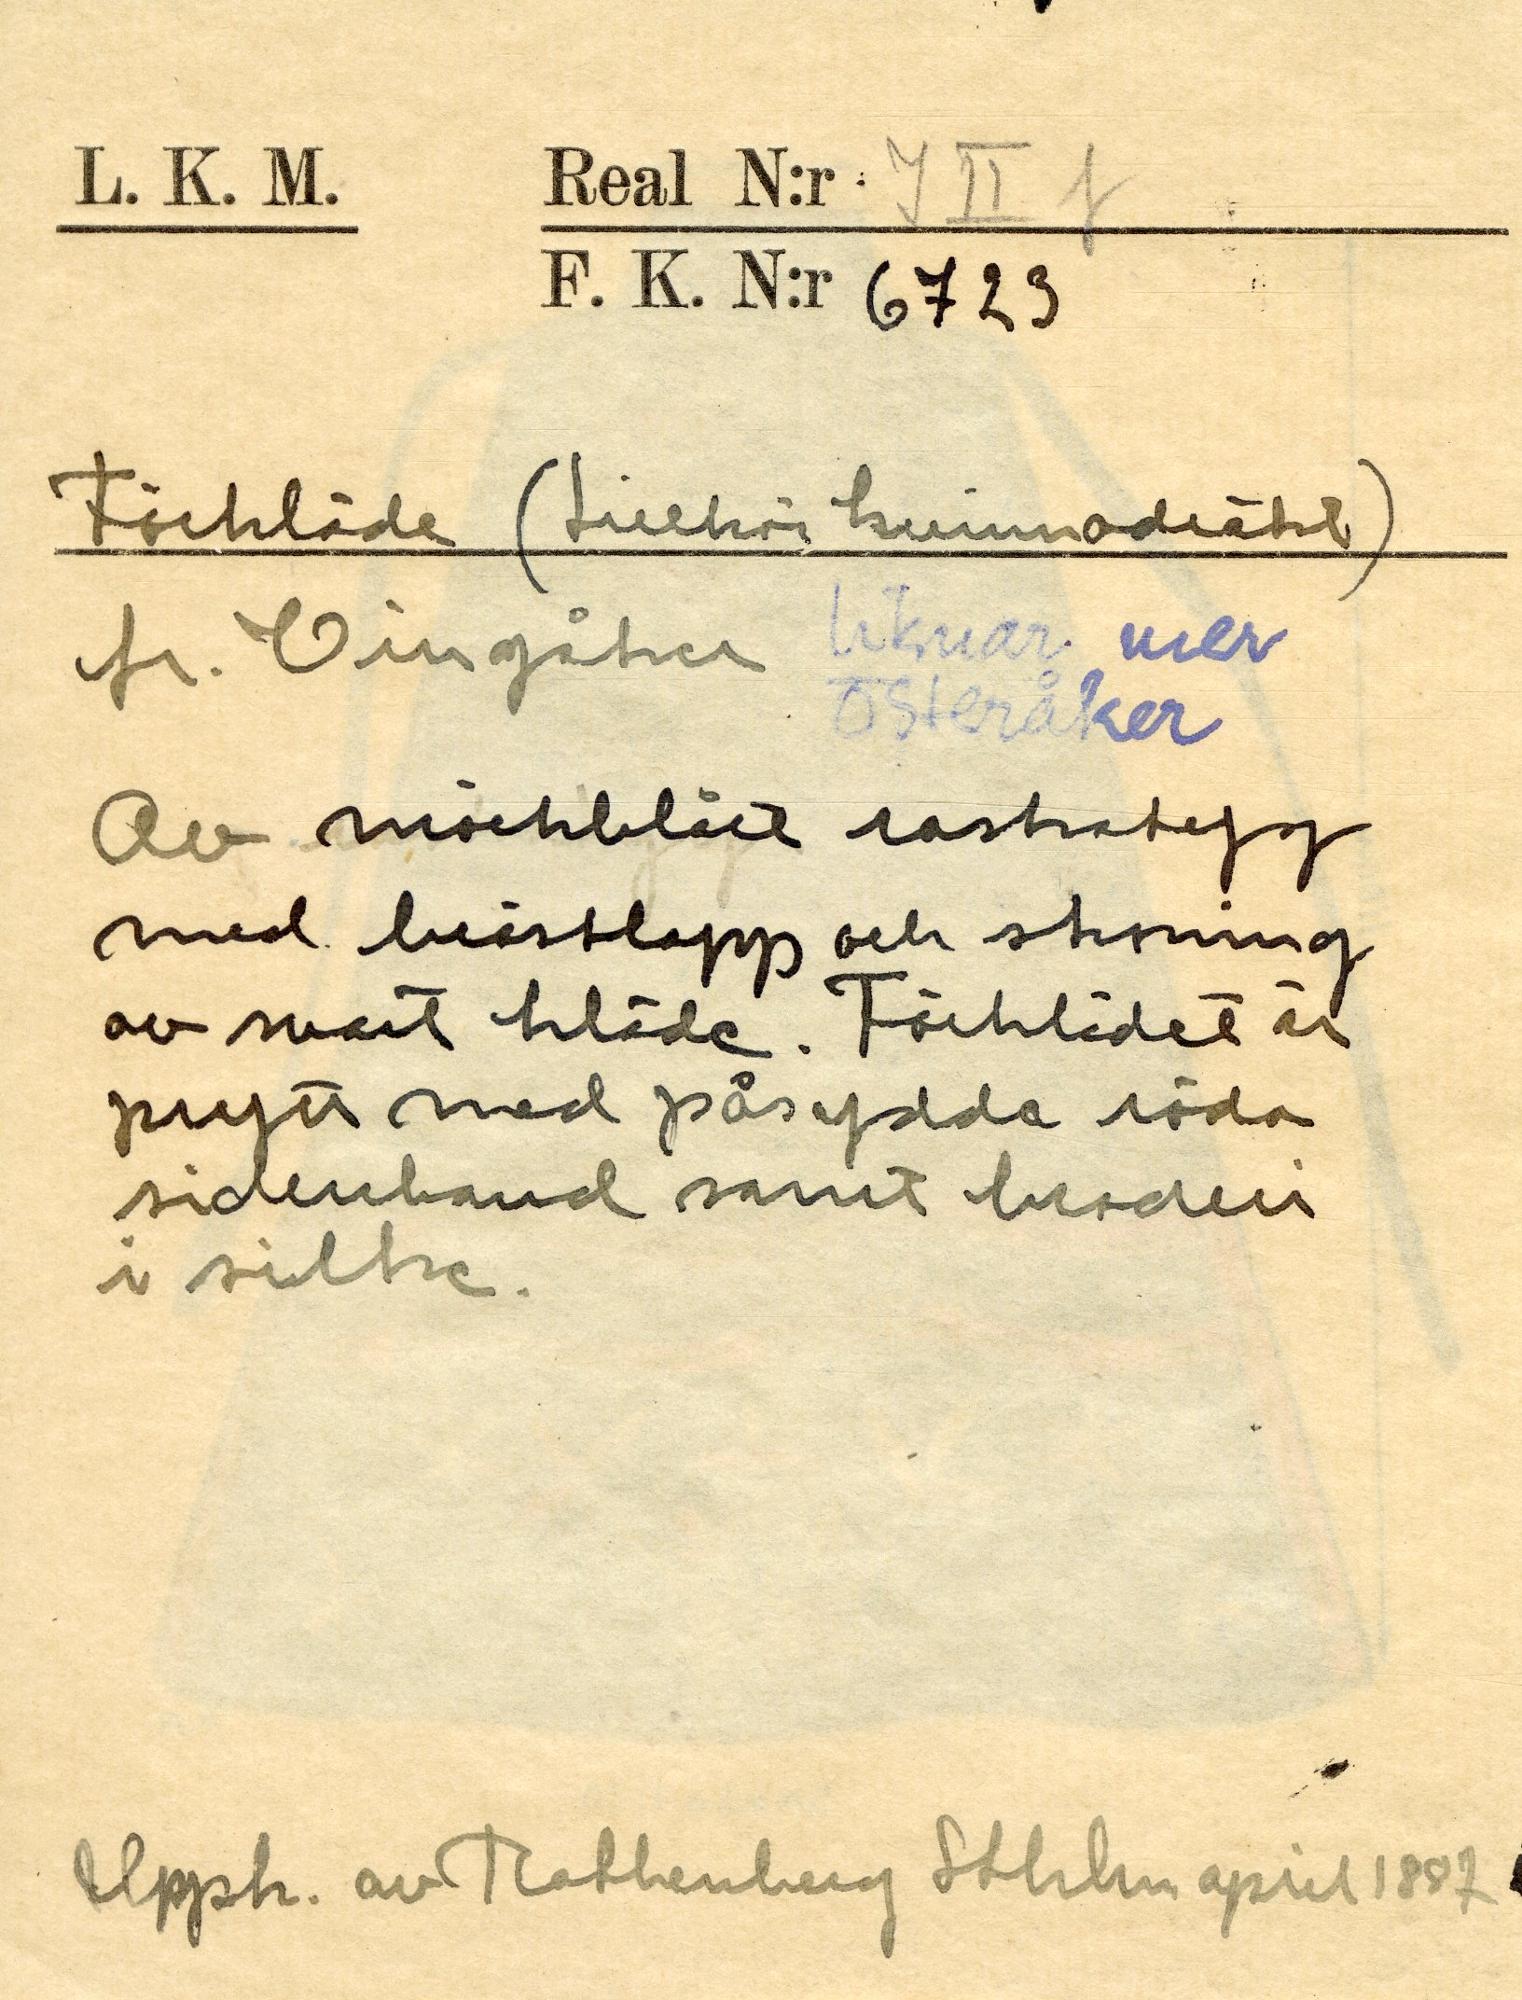 L. K. M. Real N:r J II f
F. K. N:r 6723
Förkläde (tillhör kvinnodräkt)
fr. Vingåker liknar mer
Österåker
Av mörkblått raskatyg
med bröstlapp och skoning
av svart kläde. Förklädet är
prytt med påsydda röda
sidenband samt broderi
i silke.
Uppk. av Rothenberg Sthlm april 1887